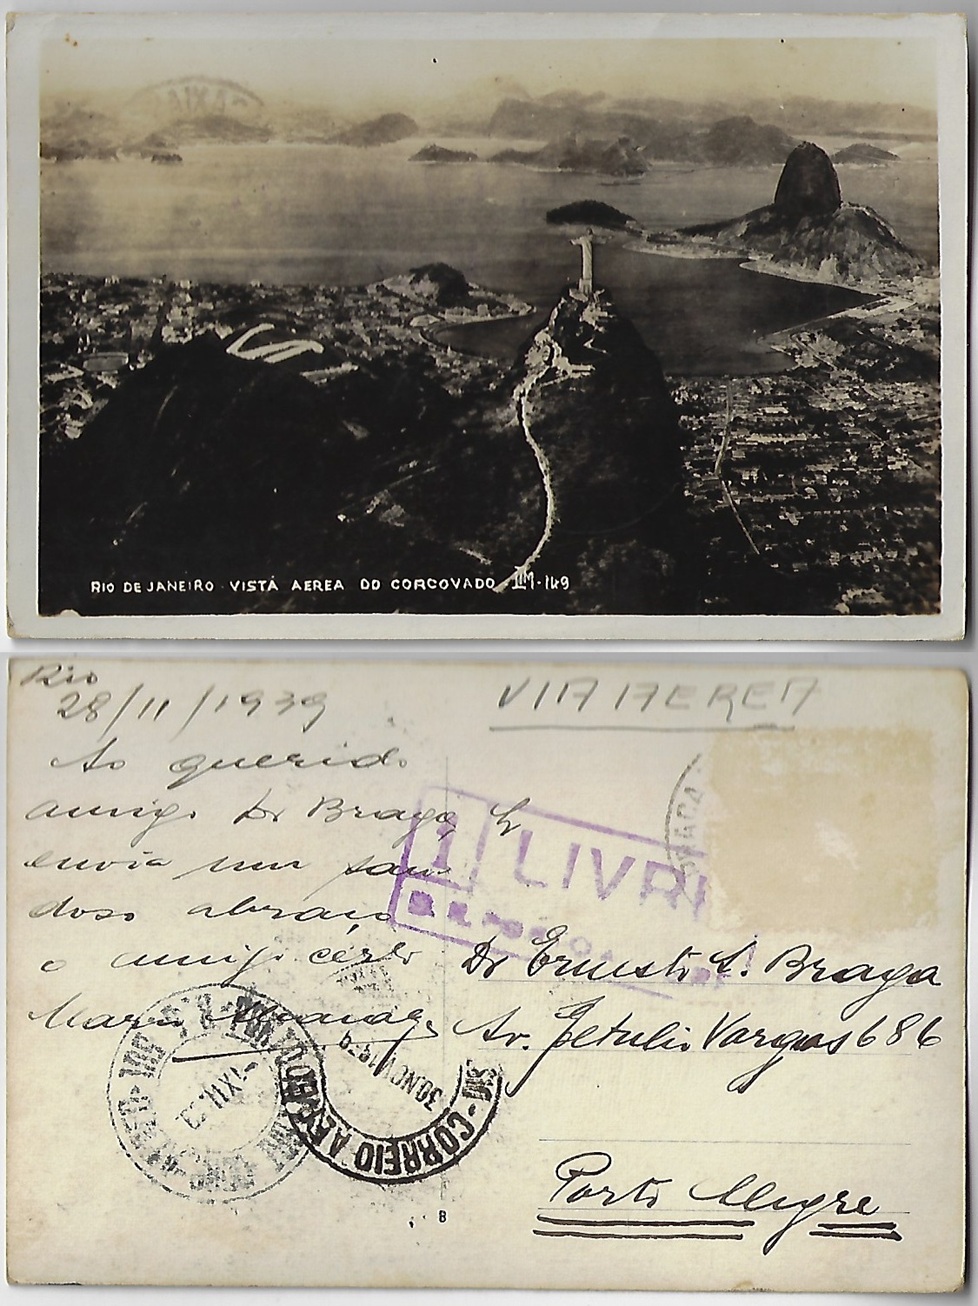 RIO DE JANEIRO - VISTA AEREA DO CORCOVADO - LM-149
Rio
28/11/1939
VIA AEREA
Ao querido
amigo Dr Braga,
envia um sau
doso abraço
o amigo certo
Mario
1 LIVR
Dr Ernesto S. Braga
Av. Getulio Vargas 686
Porto Alegre
CORREIO AEREO
30.NOV.
8